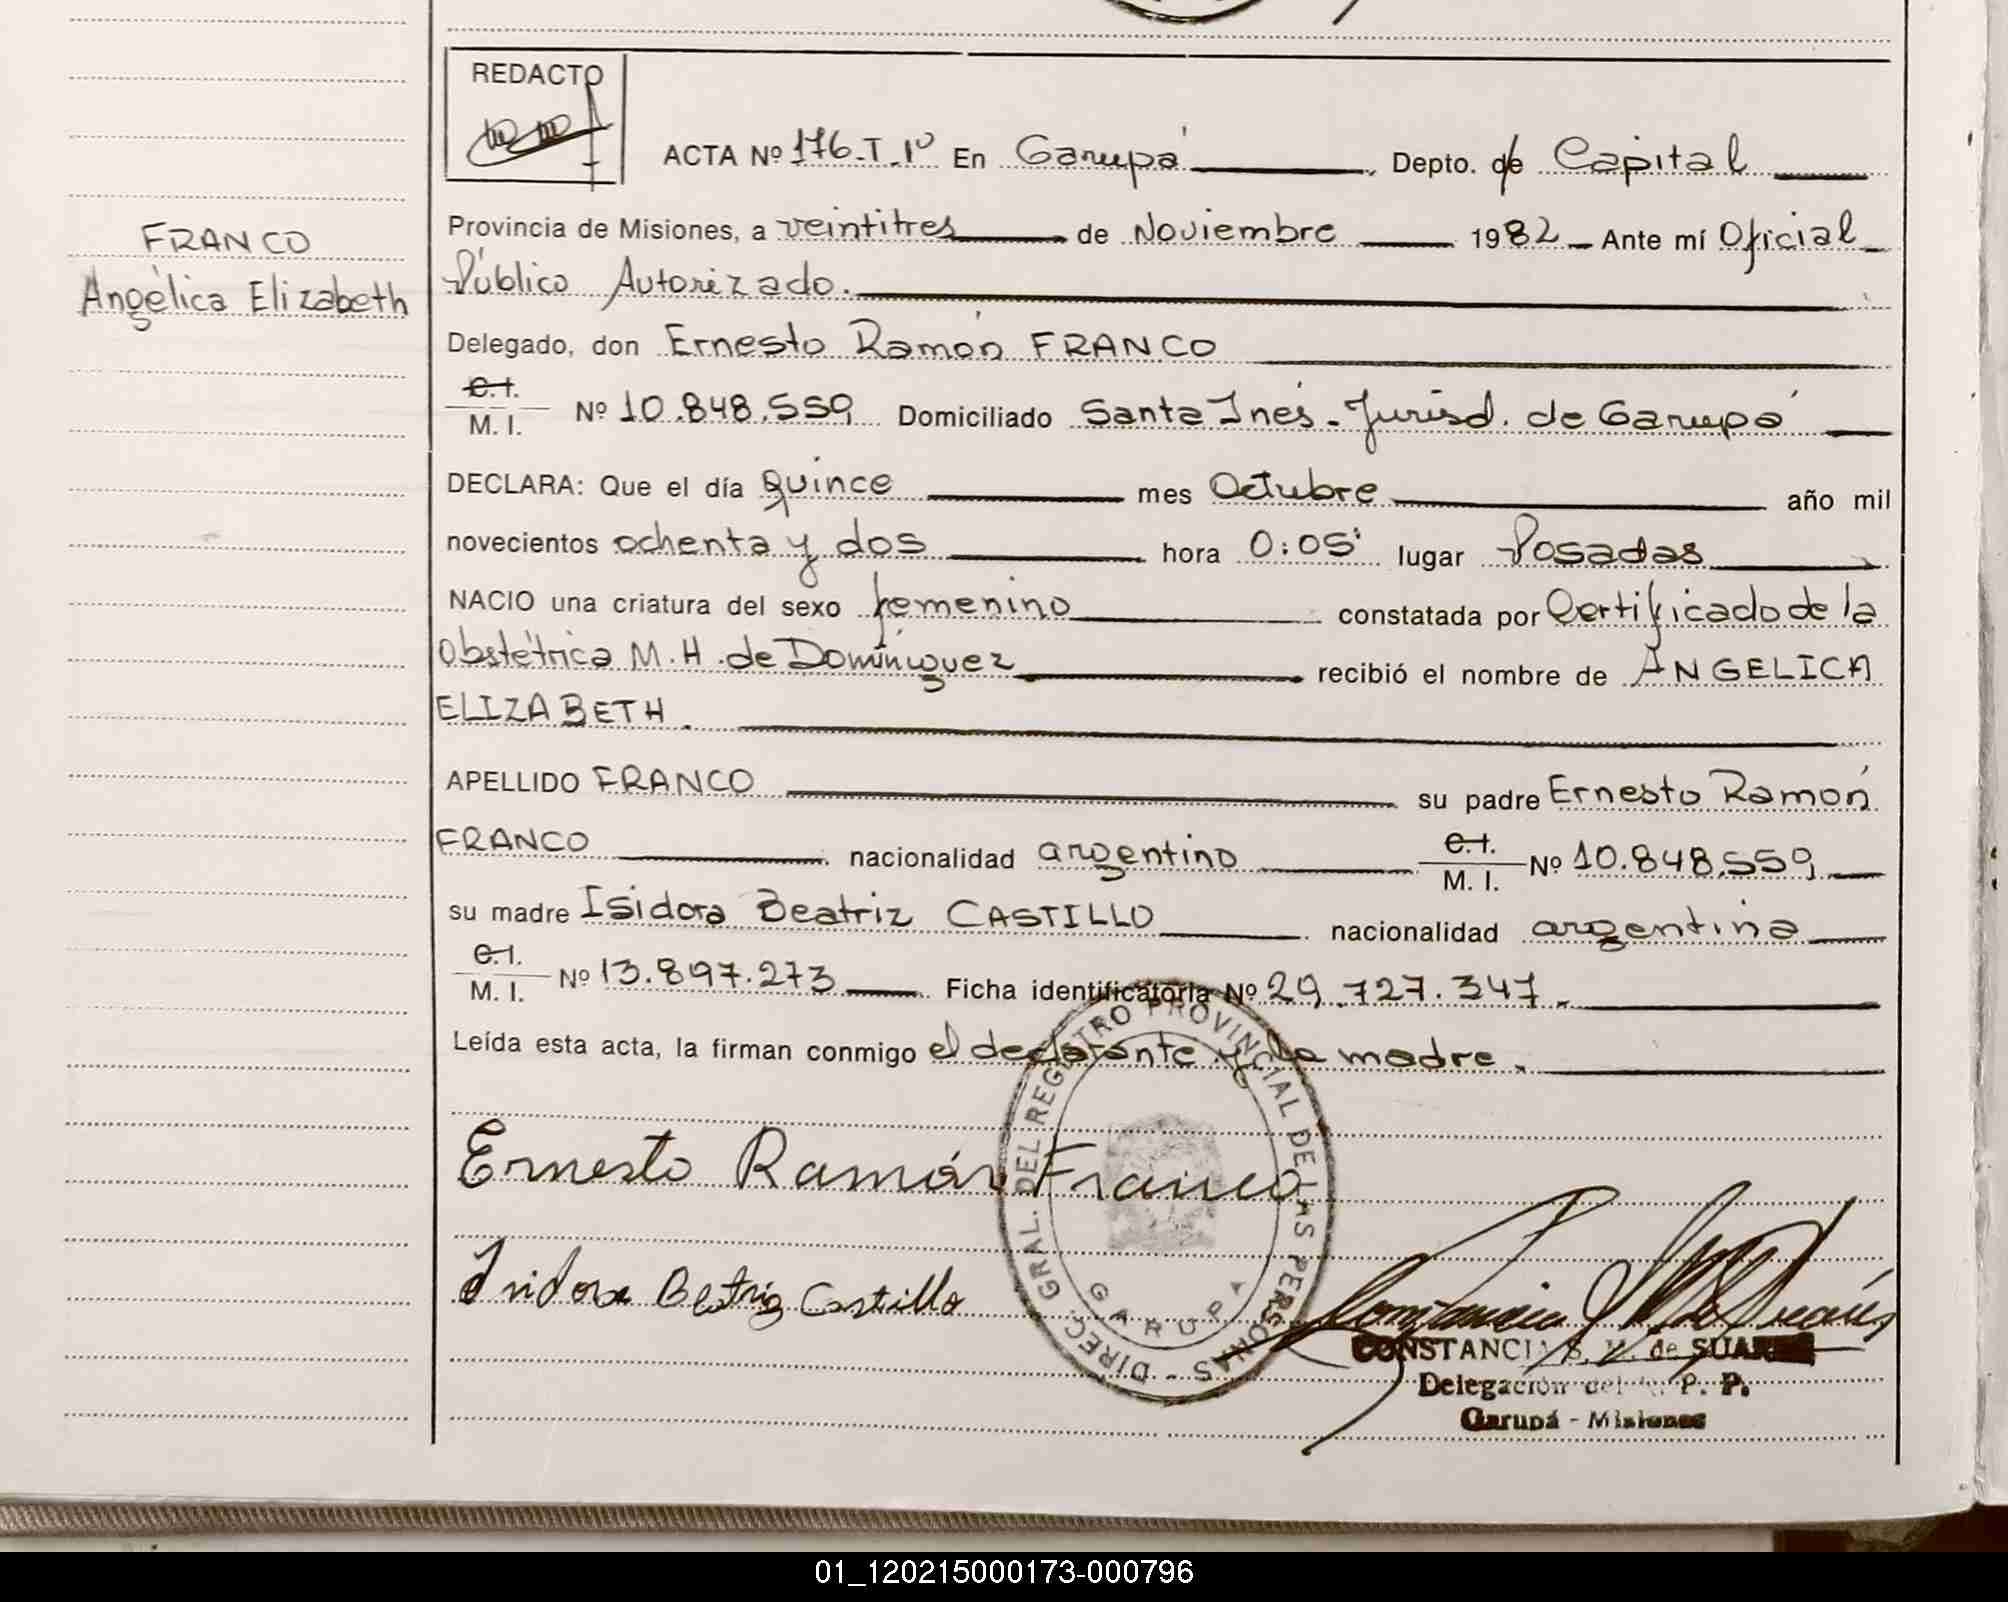 REDACTO
ACTA Nº 176.T.1º En Garupá, Depto. de Capital
FRANCO
Angélica Elizabeth
Provincia de Misiones, a veintitres de Noviembre 1982 Ante mí Oficial
Público Autorizado.
Delegado, don Ernesto Ramón FRANCO
C.I.
M. I. Nº 10.848.559 Domiciliado Santa Inés - Jurisd. de Garupá
DECLARA: Que el día quince mes Octubre año mil
novecientos ochenta y dos hora 0:05' lugar Posadas
NACIO una criatura del sexo femenino constatada por Certificado de la
Obstétrica M.H. de Domínguez recibió el nombre de ANGELICA
ELIZABETH.
APELLIDO FRANCO su padre Ernesto Ramón
FRANCO nacionalidad argentino C.I.
M. I. Nº 10.848.559
su madre Isidora Beatriz CASTILLO nacionalidad argentina
C.I.
M. I. Nº 13.897.273 Ficha identificatoria Nº 29.727.347.
Leída esta acta, la firman conmigo el declarante y la madre.
Ernesto Ramón Franco
Isidora Beatriz Castillo
DIREC. GRAL. DEL REGISTRO PROVINCIAL DE LAS PERSONAS -
GARUPA
CONSTANCIA S. M. de SUAREZ
Delegación del P. P.
Garupá - Misiones
01_120215000173-000796